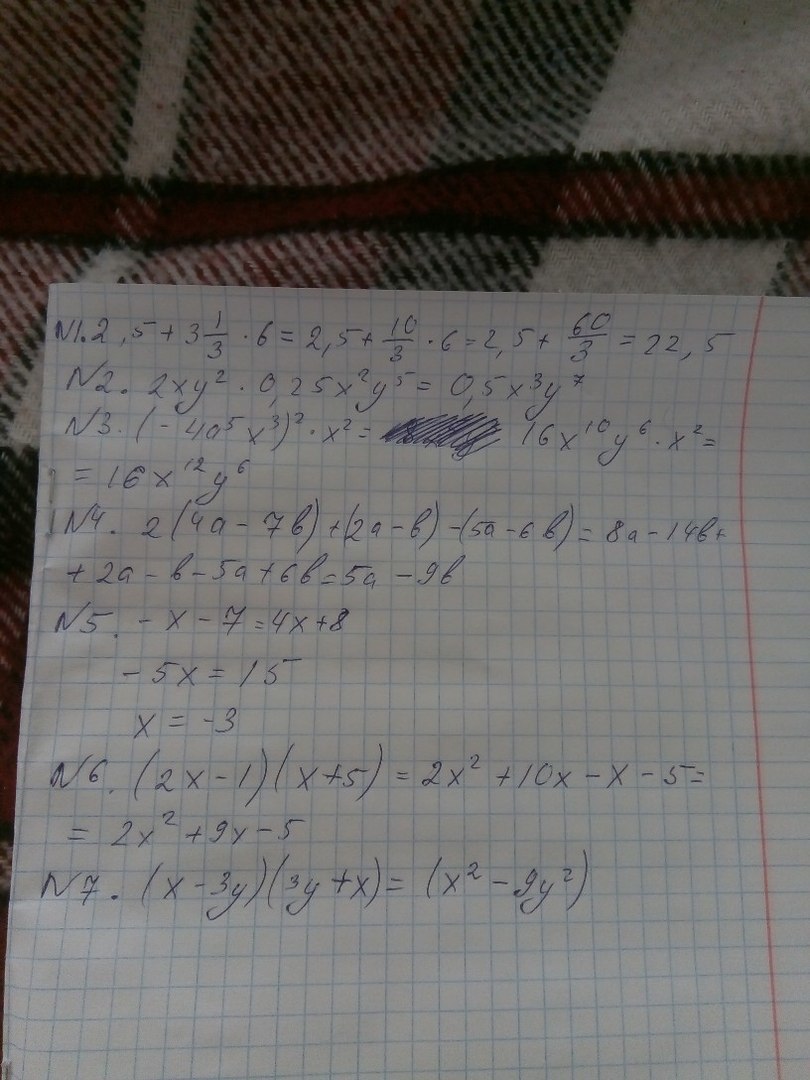 N1. 2,5 + 3 1/3 · 6 = 2,5 + 10/3 · 6 = 2,5 + 60/3 = 22,5
N2. 2xy² · 0,25x²y⁵ = 0,5x³y⁷
N3. (-4a⁵x³)² · x² = 16x¹⁰y⁶ · x² =
= 16x¹²y⁶
N4. 2(4a - 7b) + (2a - b) - (5a - 6b) = 8a - 14b +
+ 2a - b - 5a + 6b = 5a - 9b
N5. -x - 7 = 4x + 8
-5x = 15
x = -3
N6. (2x - 1)(x + 5) = 2x² + 10x - x - 5 =
= 2x² + 9x - 5
N7. (x - 3y)(3y + x) = (x² - 9y²)